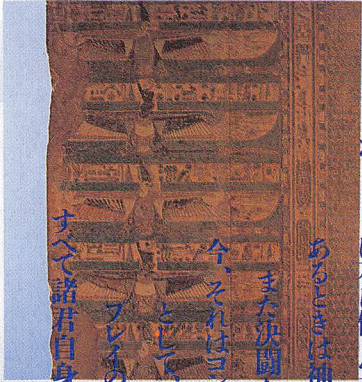 あるときは神
また決闘
今、それはコ
として、
プレイの
すべて諸君自身